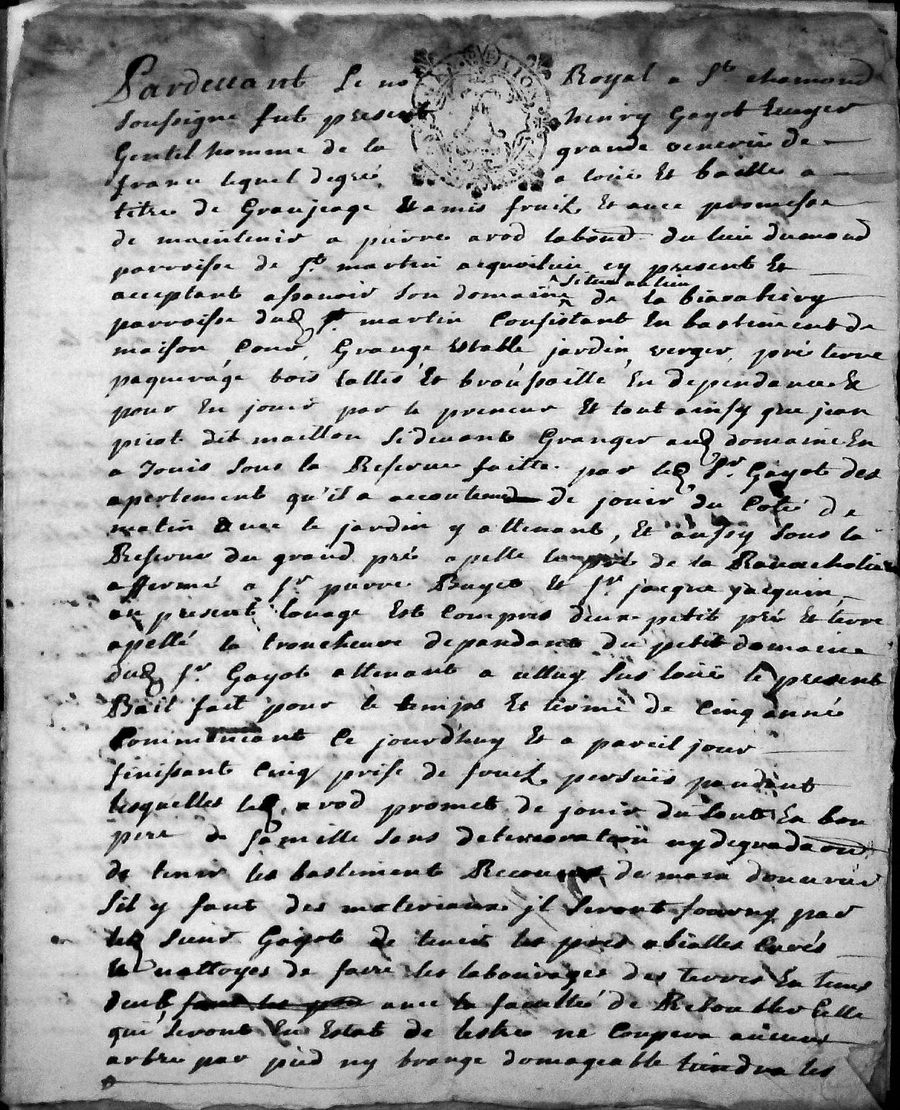 Pardevant le no Royal a St chamond
Soussigne fut present henry Gayot Ecuyer
Gentil homme de la grande venerie de
france lequel degré a loüé Et baille a
titre de Granjeage Et amis fruik Et avec promesse
de maintenir a pierre arod laboud du lieu dumond
parroisse de St martin acqualieu cy present Et
acceptant assavoir Son domaine situe au lieu de la
parroisse dud St martin Consistant En bastiment de
maison, Cour, Grange Estable jardin, verger, prés terre
paquerage bois tallis Et broussaille, En dependance Et
pour En jouir par le preneur Et tout ainsy que jean
picot dit maillon Sidevant Granger aud domaine En
a Jouis Sous la Reserve faitte par led Sr. Gayot des
apertement qu'il a accoutend de jouir du Coté de
matin avec le jardin y attenant, Et aussy Sous la
Reserve du grand pré apelle le pré de la
affermé a Sr pierre Et Sr jacque
au present loüage Est Compris deux petit pré Et terre
apellé la troncheure dependant du petit domaine
dud Sr Gayot attenant a celluy Sus loüé le present
Bail fait pour le temps Et terme de Cinq année
Commencant Ce jourdhuy Et a pareil jour
finissant Cinq prise de fruik persuis pendent
lesquelles led arod promet de jouir du tout En bon
pere de famille Sans deterioration ny degradaon
de tenir les bastiment de main douvrier
Sil y faut des materiaux jl Seront fourny par
led Sieur Gayot de tenir les prés abialles Curés
Et nattoyes de faire les labourages des terres En tems
deub avec la faculté de Celle
qui Seront En Estat de lestre ne Coupera aucun
arbre par pied ny brange domageable tiendra les